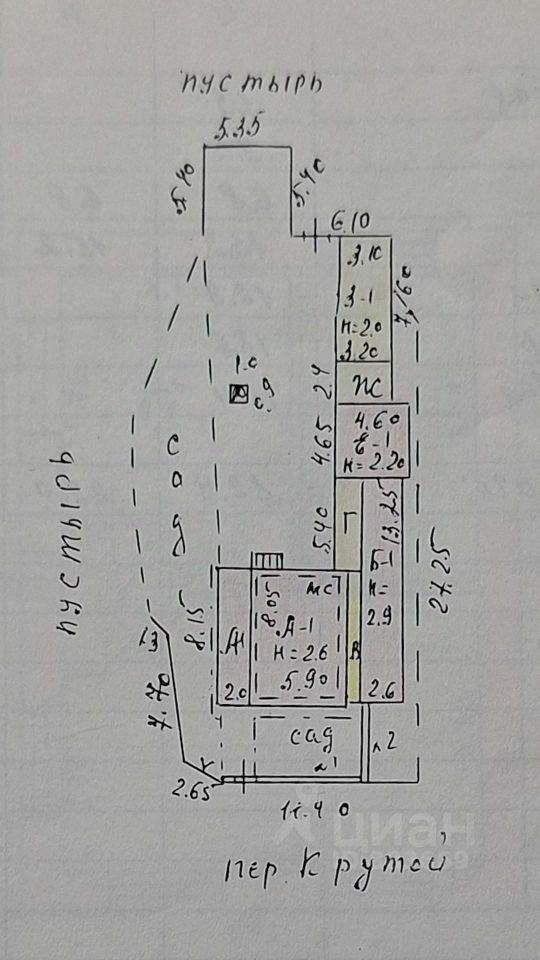 пустырь
5.35
5.40
5.40
6.10
3.10
З-1
н=2.0
3.20
7.60
1.0
0.9
2.4
Ж
4.60
Е-1
н=2.20
4.65
сад
пустырь
5.40
Г
13.25
Б-1
н=
2.9
27.25
8.15
8.05
МС
А-1
н=2.6
5.90
2.0
В
2.6
13
7.70
сад
л 2
2.65
11.40
циан
пер. Крутой